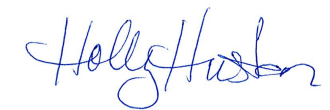 Holly Huston